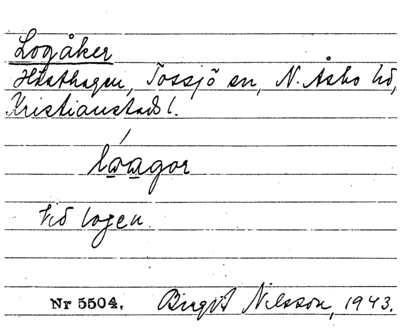 Logåker
Hästhagen, Tossjö sn, N. Åsbo hd,
Kristianstads l.
lωagor
Vid logen.
Nr 5504. Birgit Nilsson, 1943.